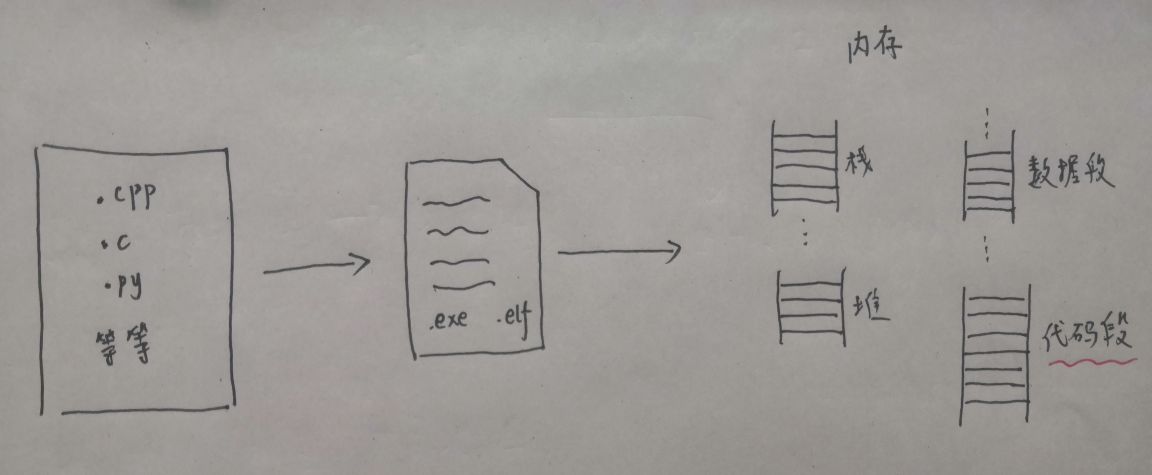 .cpp
.c
.py
等等
.exe .elf
内存
栈
堆
数据段
代码段